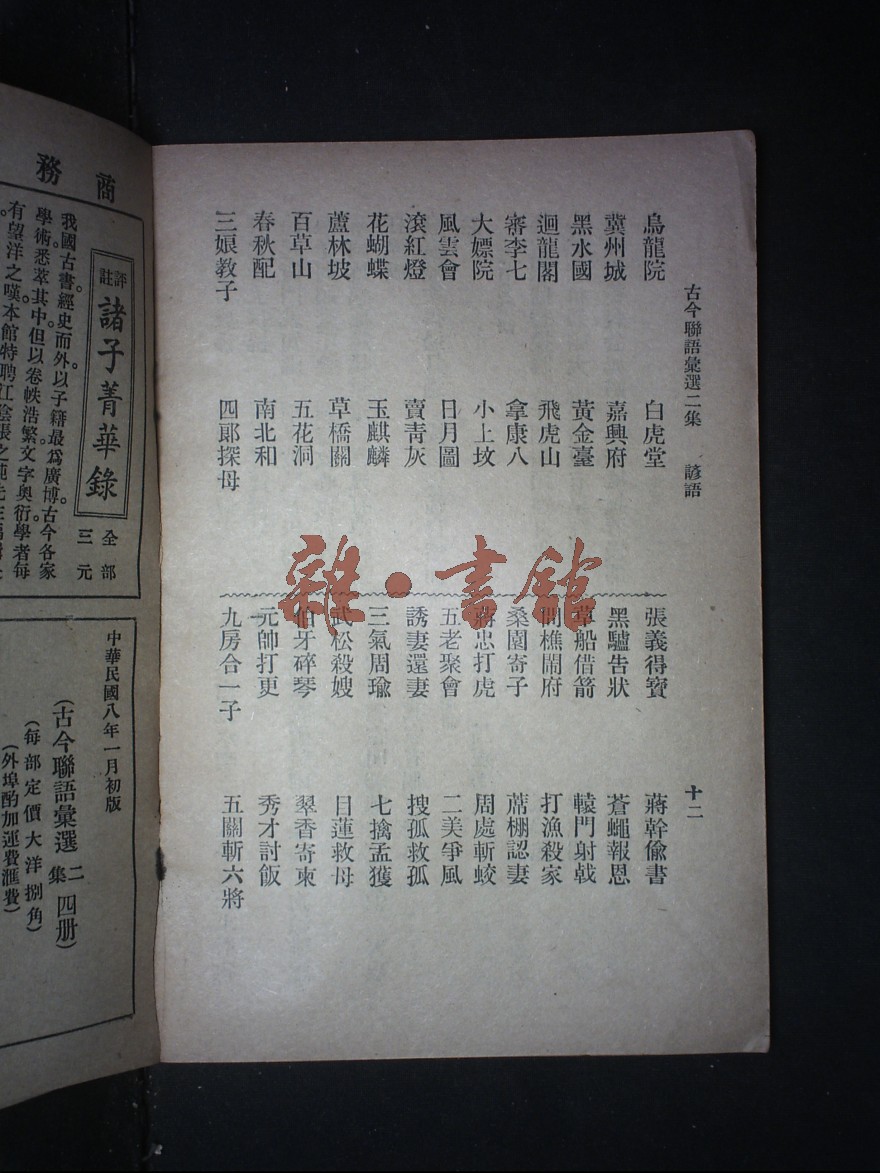 古今聯語彙選二集 諺語 十二
烏龍院 白虎堂
冀州城 嘉興府
黑水國 黃金臺
迴龍閣 飛虎山
審李七 拿康八
大嫖院 小上坟
風雲會 日月圖
滾紅燈 賣青灰
花蝴蝶 玉麒麟
蘆林坡 草橋關
百草山 五花洞
春秋配 南北和
三娘教子 四郎探母
張義得寶 蔣幹偷書
黑驢告狀 蒼蠅報恩
草船借箭 轅門射戟
問樵鬧府 打漁殺家
桑園寄子 蓆棚認妻
蔣忠打虎 周處斬蛟
五老聚會 二美爭風
誘妻還妻 搜孤救孤
三氣周瑜 七擒孟獲
武松殺嫂 目蓮救母
伯牙碎琴 翠香寄柬
元帥打更 秀才討飯
九房合一子 五關斬六將
雜·書館
商務
評註
諸子菁華錄
全部
三元
我國古書經史而外以子籍最爲廣博古今各家
學術悉萃其中。但以卷帙浩繁文字奧衍學者每
有望洋之嘆本館特聘江陰張之純先生
中華民國八年一月初版
(古今聯語彙選二集四册)
(每部定價大洋捌角)
(外埠酌加運費滙費)